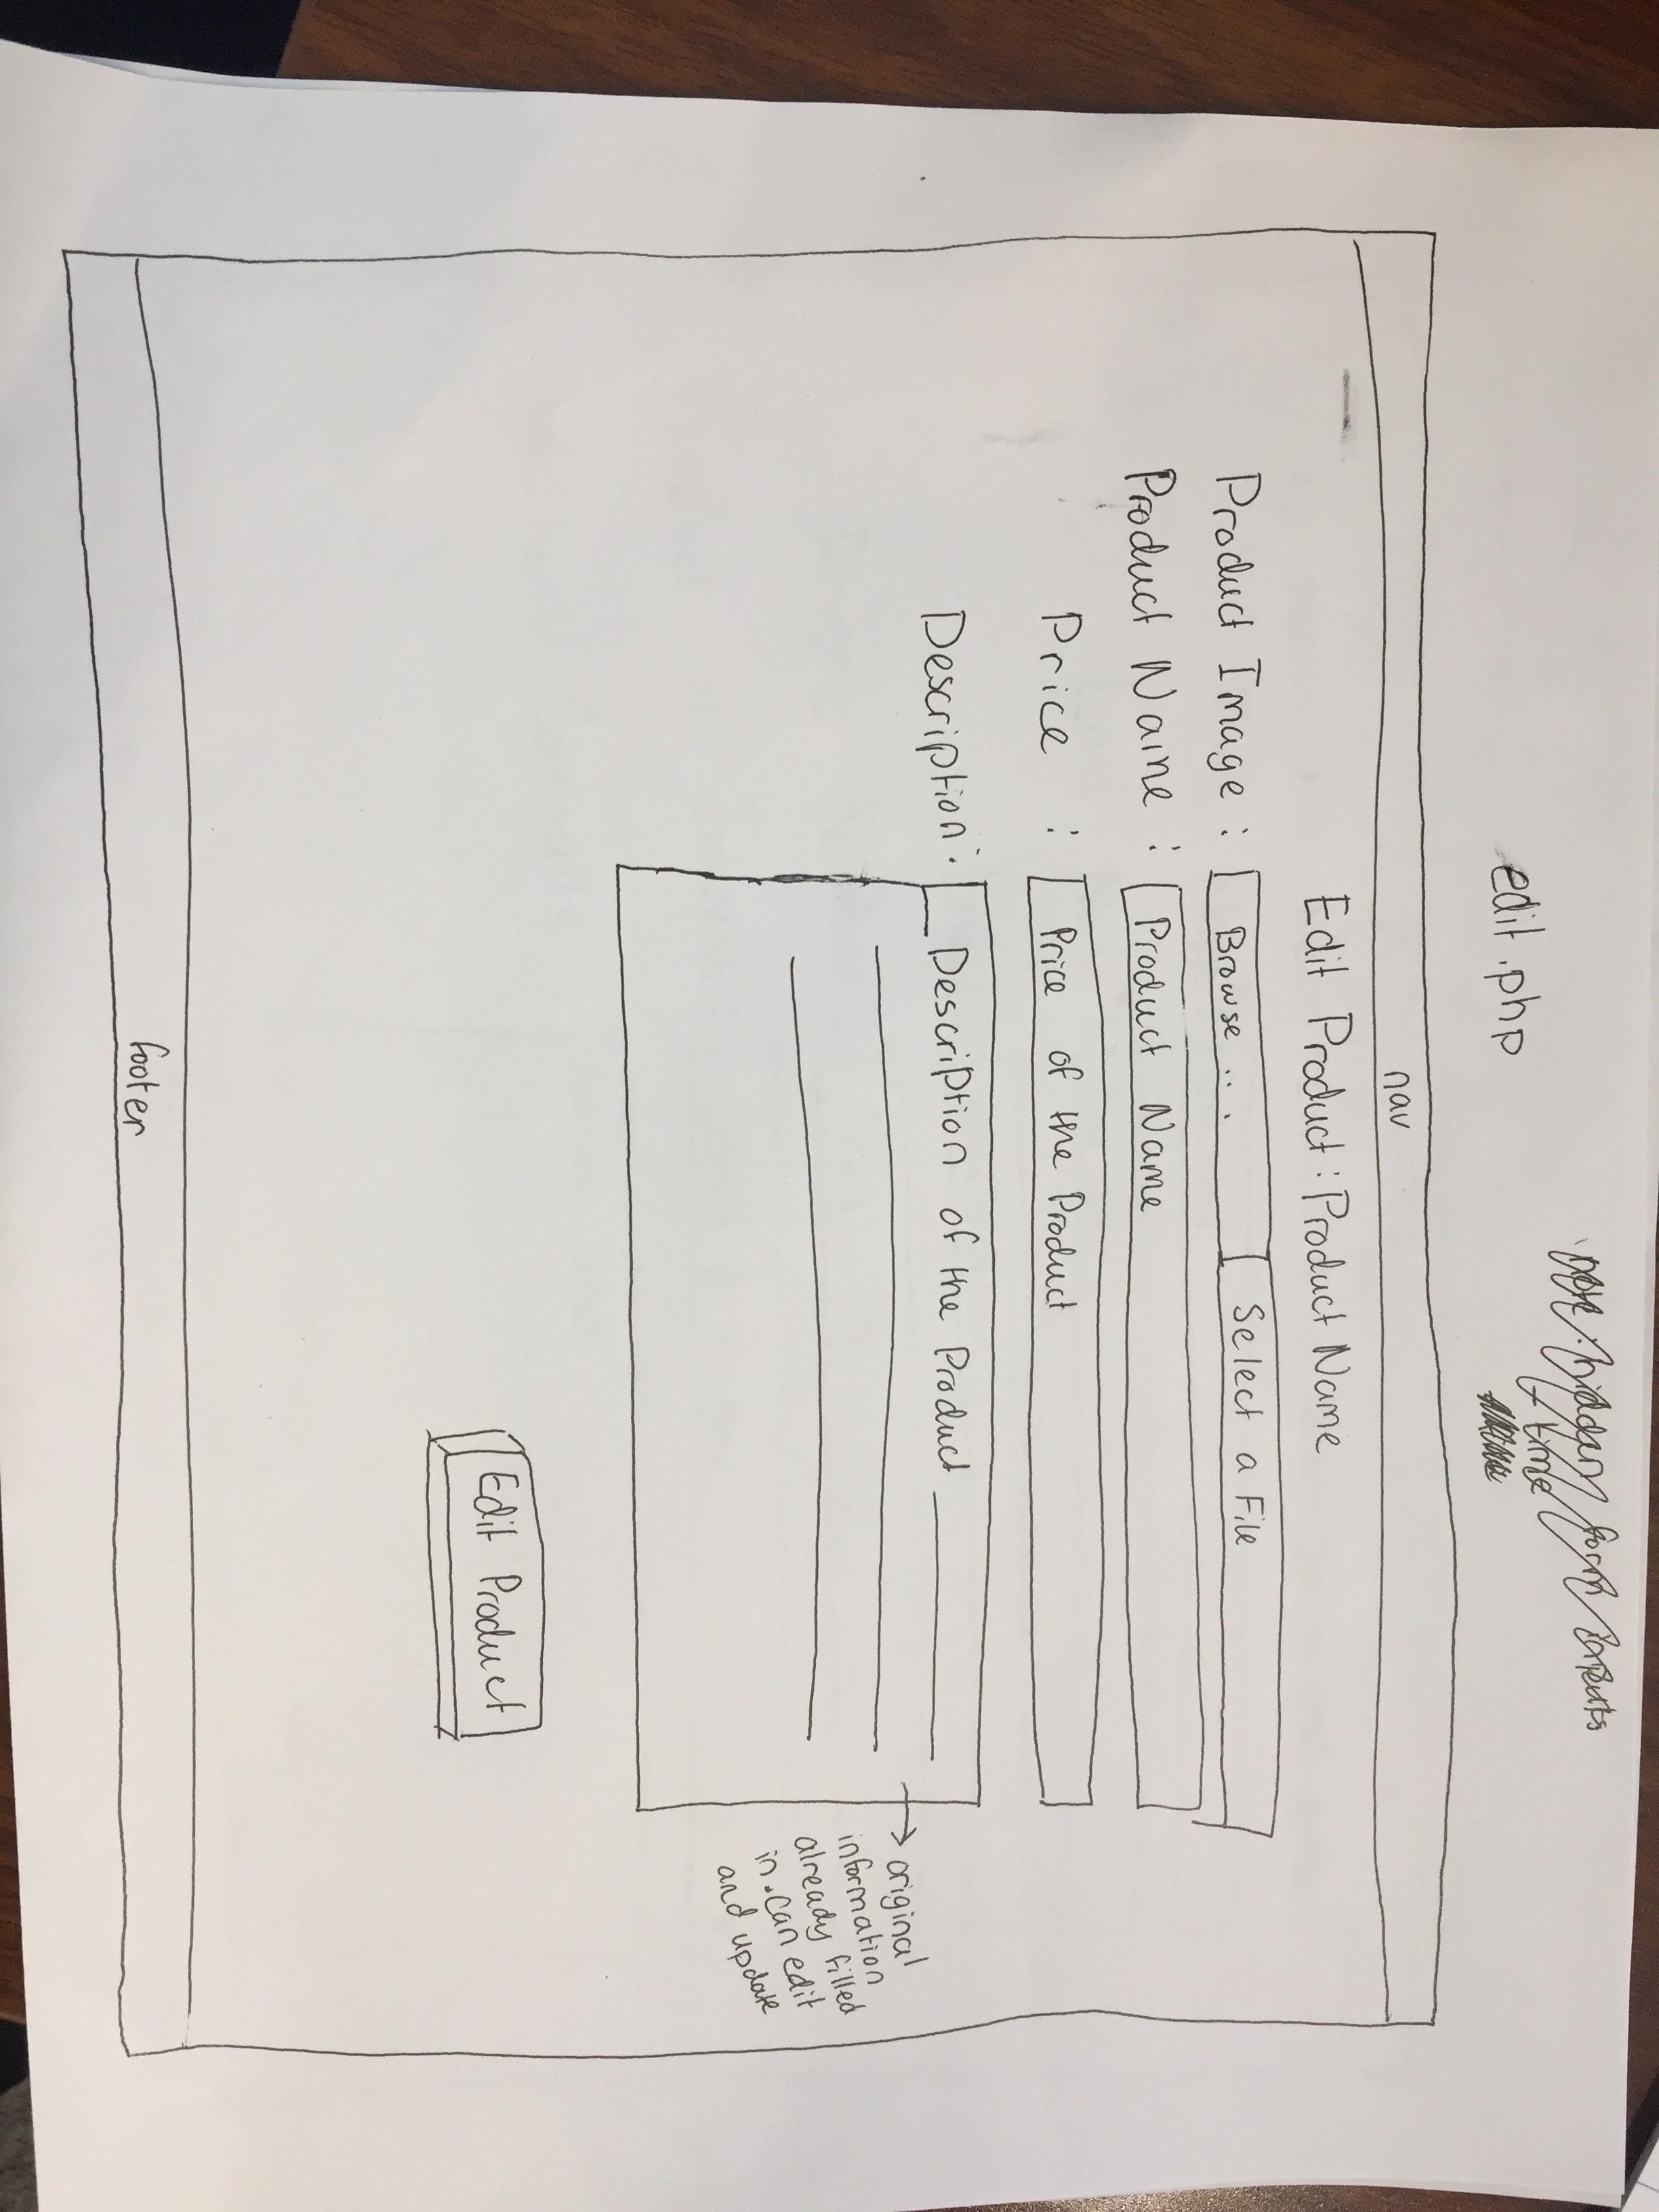 edit.php
nav
Edit Product: Product Name
Product Image : Browse ... Select a File
Product Name : Product Name
Price : Price of the Product
Description: Description of the Product
→ original
information
already filled
in. Can edit
and update
Edit Product
footer